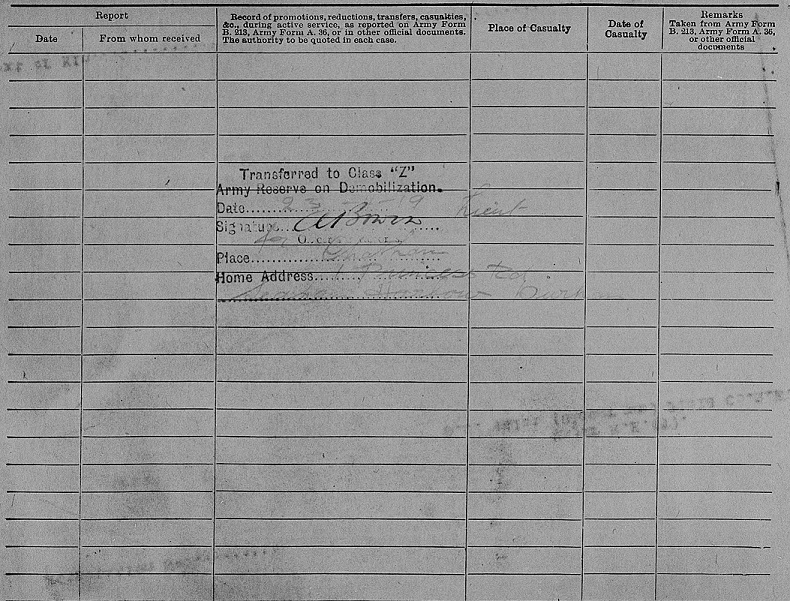 Report
Date
From whom received
Record of promotions, reductions, transfers, casualties,
&c., during active service, as reported on Army Form
B. 213, Army Form A. 36, or in other official documents.
The authority to be quoted in each case.
Place of Casualty
Date of
Casualty
Remarks
Taken from Army Form
B. 213, Army Form A. 36,
or other official
documents
Transferred to Class "Z"
Army Reserve on Demobilization.
Date 19 Lieut
Signature
Place
Home Address Princess Rd
Seaham Harbour Durham